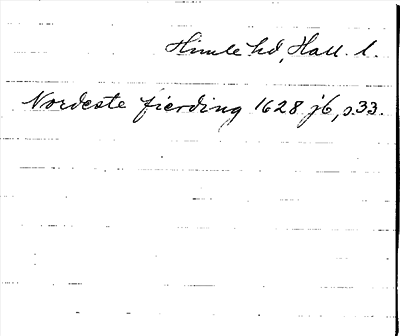 Himle hd, Hall. l.
Nordeste fierding 1628 j6, s.33.